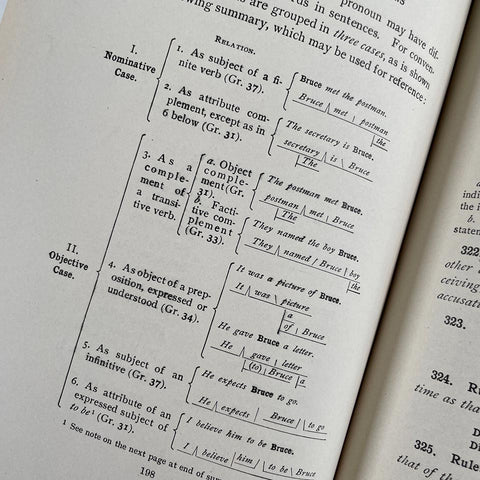 pronoun may have dif-
rds in sentences. For conven-
are grouped in three cases, as is shown
wing summary, which may be used for reference:
RELATION.
I.
Nominative
Case.
1. As subject of a fi-
nite verb (Gr. 37).
Bruce met the postman.
Bruce met postman
the
2. As attribute com-
plement, except as in
6 below (Gr. 31).
The secretary is Bruce.
secretary is Bruce
The
II.
Objective
Case.
3. As a
comple-
ment of
a transi-
tive verb.
a. Object
comple-
ment (Gr.
31).
The postman met Bruce.
postman met Bruce
The
b. Facti-
tive com-
plement
(Gr. 33).
They named the boy Bruce.
They named / Bruce boy
the
4. As object of a prep-
osition, expressed or
understood (Gr. 34).
It was a picture of Bruce.
It was picture
a
of Bruce
He gave Bruce a letter.
He gave letter
(to) Bruce a
5. As subject of an
infinitive (Gr. 37).
He expects Bruce to go.
He expects Bruce to go
6. As attribute of an
expressed subject of
to be¹ (Gr. 31).
I believe him to be Bruce.
I believe him / to be \ Bruce
1 See note on the next page at end of sum
198
a
ind
the i
b.
staten
322
other
ceiving
accusati
323.
324. Ru
time as that
D
Di
325. Rule
that of the